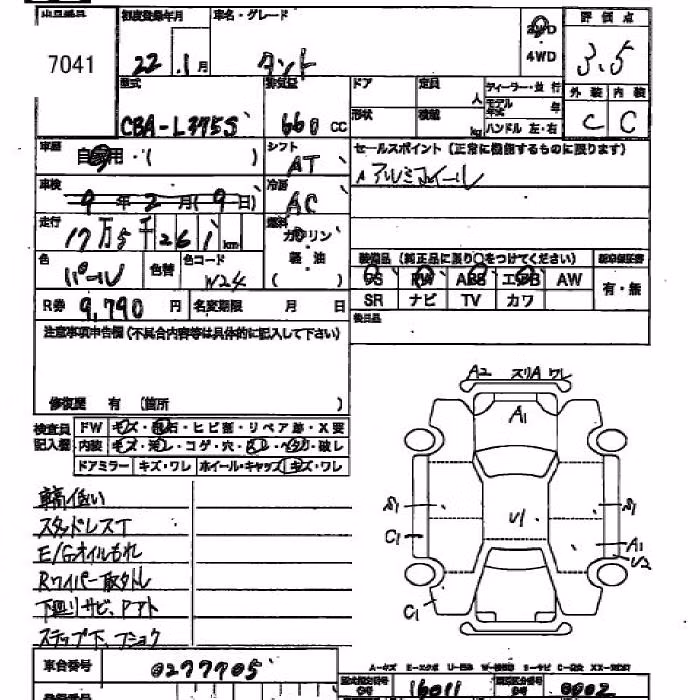 出品番号 初度登録年月 車名・グレード 2WD 評価点
7041 22 . 1 月 タント 4WD 3.5
外装 内装
型式 排気量 ドア 定員 人 ディーラー・並行
CBA-L375S 660 CC 形状 積載 kg モデル年式 年 C C
ハンドル 左・右
車歴 シフト セールスポイント (正常に機能するものに限ります)
自家用・( ) AT アルミホイール
車検 冷房
9 年 2 月 (9 日) AC
走行 燃料
17 万 5 千 261 km ガソリン
色 色替 色コード 軽油 装備品 (純正品に限り○をつけてください)
パール W24 ( ) PS PW ABS エアB AW 有・無
R券 9,790 円 名変期限 月 日 SR ナビ TV カワ
後日品
注意事項申告欄 (不具合内容等は具体的に記入して下さい)
修復歴 有 (箇所 )
A2 スリA ワレ
A1
検査員記入欄 FW キズ・飛石・ヒビ割・リペア跡・X要
内装 キズ・汚れ・コゲ・穴・ ・ ・破レ
ドアミラー キズ・ワレ ホイール・キャップ キズ・ワレ
車高低い
スタッドレスT
E/Gオイルもれ
Rワイパー取外し
下廻りサビ、Pアト
ステップ下、フショク
S1 S1
C1 U1 A1
U2
C1
車台番号 0277705
A-キズ E-エクボ U-凹み W-補修跡 S-サビ C-腐食
型式指定番号 16011 類別区分番号 0002
登録番号